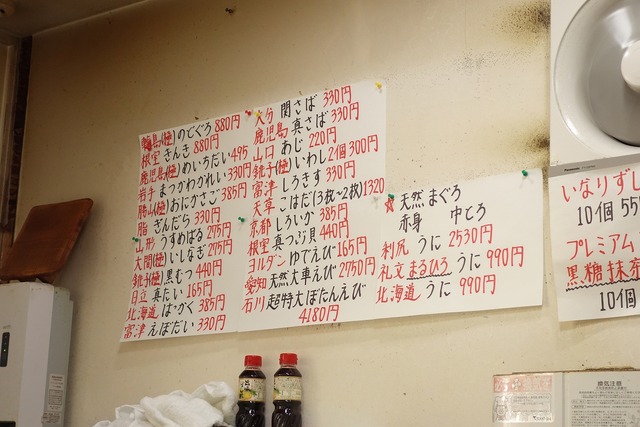 島(極)のどぐろ 880円
根室 きんき 880円
鹿児島(極)めいちだい495
岩手 まつかわがれい 330円
勝山(極)おにかさご 385円
脂 ぎんだら 330円
山形 うすめばる 275円
大間(極)いしなぎ 275円
銚子(極)黒むつ 440円
日立 真だい 165円
北海道 はっかく 385円
富津 えぼだい 330円
大分 関さば 330円
鹿児島 真さば 330円
山口 あじ 220円
銚子(極)いわし2個300円
富津 しろきす 330円
天草 こはだ(3枚〜2枚)1320
京都 しろいか 385円
根室 真つぶ貝 440円
ヨルダン ゆでえび 165円
愛知 天然大車えび 2750円
石川 超特大ぼたんえび
4180円
天然 まぐろ
赤身 中とろ
利尻 うに 2530円
礼文 まるひろ うに 990円
北海道 うに 990円
いなりずし
10個 55
プレミアム
黒糖抹茶
10個
換気注意